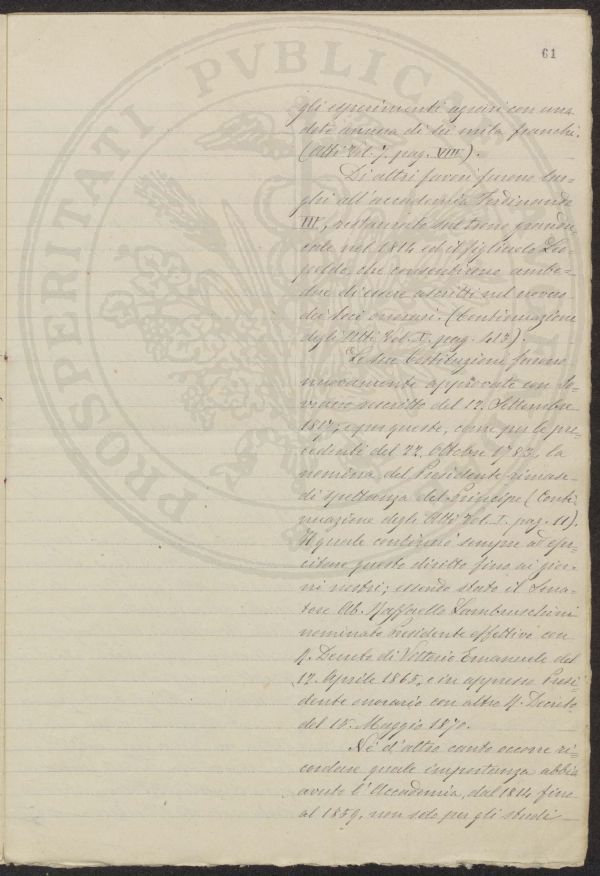 61
gli esperimenti agrari con una
dote annua di sei mila franchi.
(Atti Vol. 7. pag. VIII).
Di altri favori furono lar=
ghi all'accademia Ferdinando
III, restaurato sul trono grandu
cale nel 1814 ed il figliuolo Leo=
poldo, che consentirono ambe=
due di essere ascritti nel novero
dei Soci onorari. (Continuazione
degli Atti Vol. I. pag. 413).
Le sue Costituzioni furono
nuovamente approvate con So=
vrano rescritto del 12. Settembre
1817, e per queste, come per le pre=
cedenti del 22. Ottobre 1783, la
nomina del Presidente rimase
di spettanza del Principe (Conti=
nuazione degli Atti Vol. I. pag. 11).
Il quale continuò sempre ad eser=
citare questo diritto fino ai gior=
ni nostri; essendo stato il Sena=
tore Ab. Raffaello Lambruschini
nominato Presidente effettivo con
R. Decreto di Vittorio Emanuele del
12. Aprile 1865, e in appresso Presi=
dente onorario con altro R. Decreto
del 15. Maggio 1870.
Nè d'altro canto occorre ri=
cordare quale importanza abbia
avuto l'Accademia, dal 1814 fino
al 1859, non solo per gli studi
PROSPERITATI PVBLICAE